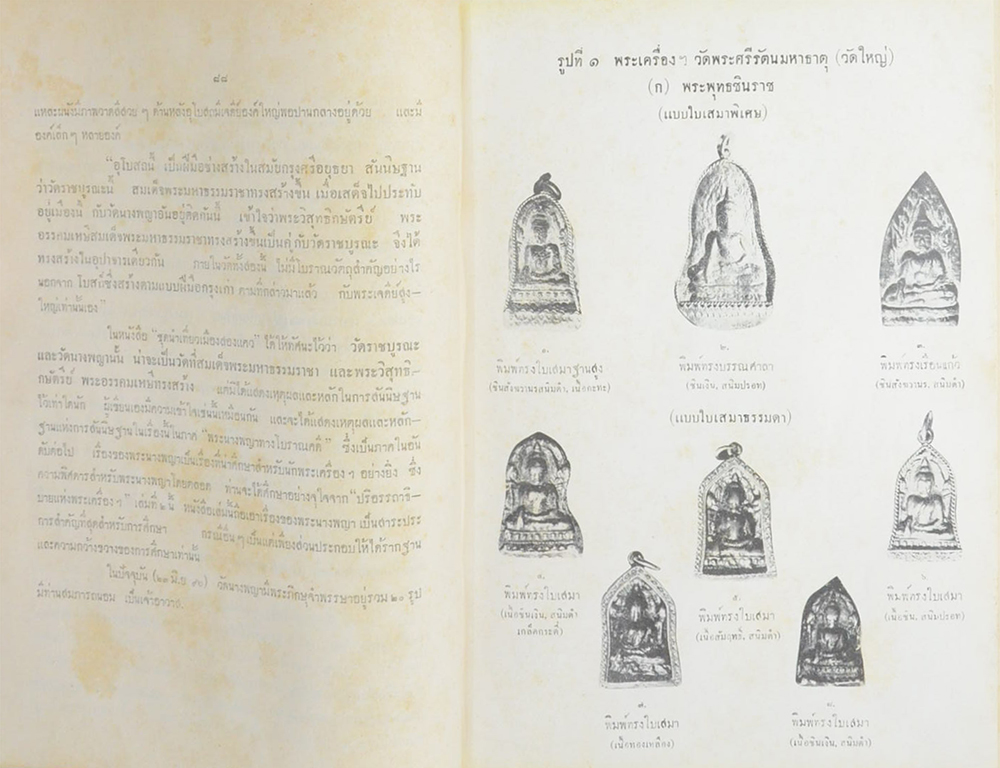 ๘๘
และมีผนังมีภาพวาดสีสวย ๆ ด้านหลังอุโบสถมีเจดีย์องค์ใหญ่พอปานกลางอยู่ด้วย และมี
องค์เล็ก ๆ หลายองค์
"อุโบสถนี้ เป็นฝีมือช่างสร้างในสมัยกรุงศรีอยุธยา สันนิษฐาน
ว่าวัดราชบูรณะนี้ สมเด็จพระมหาธรรมราชาทรงสร้างขึ้น เมื่อเสด็จไปประทับ
อยู่เมืองนี้ กับวัดนางพญาอันอยู่ติดกันนี้ เข้าใจว่าพระวิสุทธิกษัตรีย์ พระ
อรรคมเหษีสมเด็จพระมหาธรรมราชาทรงสร้างขึ้นเป็นคู่กับวัดราชบูรณะ จึงได้
ทรงสร้างในอุปาจารเดียวกัน ภายในวัดทั้งสองนี้ ไม่มีโบราณวัตถุสำคัญอย่างไร
นอกจาก โบสถ์ซึ่งสร้างตามแบบฝีมือกรุงเก่า ตามที่กล่าวมาแล้ว กับพระเจดีย์สูง—
ใหญ่เท่านั้นเอง"
ในหนังสือ "ชุดนำเที่ยวเมืองสองแคว" ได้ให้ทัศนะไว้ว่า วัดราชบูรณะ
และวัดนางพญานั้น น่าจะเป็นวัดที่สมเด็จพระมหาธรรมราชา และพระวิสุทธิ—
กษัตรีย์ พระอรรคมเหษีทรงสร้าง แต่มิได้แสดงเหตุผลและหลักในการสันนิษฐาน
ไว้เท่าใดนัก ผู้เขียนเองมีความเข้าใจเช่นนั้นเหมือนกัน และจะได้แสดงเหตุผลและหลัก—
ฐานแห่งการสันนิษฐานในเรื่องนี้ในภาค "พระนางพญาทางโบราณคดี" ซึ่งเป็นภาคในอัน
ดับต่อไป เรื่องของพระนางพญาเป็นเรื่องที่น่าศึกษาสำหรับนักพระเครื่อง ๆ อย่างยิ่ง ซึ่ง
ความพิศดารสำหรับพระนางพญาโดยตลอด ท่านจะได้ศึกษาอย่างจุใจจาก "ปริอรรถาธิ—
บายแห่งพระเครื่อง ๆ" เล่มที่ ๒ นี้ หนังสือเล่มนั้นถือเอาเรื่องของพระนางพญา เป็นสาระประ
การสำคัญที่สุดสำหรับการศึกษา กรณีอื่น ๆ เป็นแต่เพียงส่วนประกอบให้ได้รากฐาน
และความกว้างขวางของการศึกษาเท่านั้น
ในปัจจุบัน (๒๓ มิ.ย. ๙๖) วัดนางพญามีพระภิกษุจำพรรษาอยู่รวม ๒๐ รูป
มีท่านสมภารถนอม เป็นเจ้าอาวาส.
รูปที่ ๑ พระเครื่อง ๆ วัดพระศรีรัตนมหาธาตุ (วัดใหญ่)
(ก) พระพุทธชินราช
(แบบใบเสมาพิเศษ)
๑. ๒. ๓.
พิมพ์ทรงใบเสมาฐานสูง พิมพ์ทรงบรรณศาลา พิมพ์ทรงเรือนแก้ว
(ชินสังฆวานรสนิมดำ, เนื้อกะทะ) (ชินเงิน, สนิมปรอท) (ชินสังฆวานร, สนิมดำ)
(แบบใบเสมาธรรมดา)
๔. ๕. ๖.
พิมพ์ทรงใบเสมา พิมพ์ทรงใบเสมา พิมพ์ทรงใบเสมา
(เนื้อชินเงิน, สนิมดำ (เนื้อสัมฤทธิ์, สนิมดำ) (เนื้อชิน, สนิมปรอท)
เกล็ดกระดี่)
๗. ๘.
พิมพ์ทรงใบเสมา พิมพ์ทรงใบเสมา
(เนื้อทองเหลือง) (เนื้อชินเงิน, สนิมดำ)